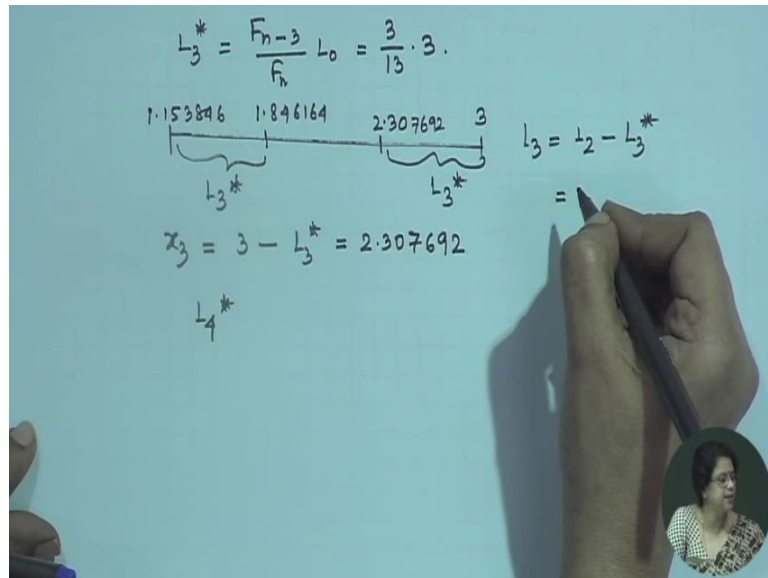 L₃* = Fₙ₋₃/Fₙ L₀ = 3/13 · 3.
1.153846 1.846164 2.307692 3
L₃* L₃*
L₃ = L₂ - L₃*
=
x₃ = 3 - L₃* = 2.307692
L₄*